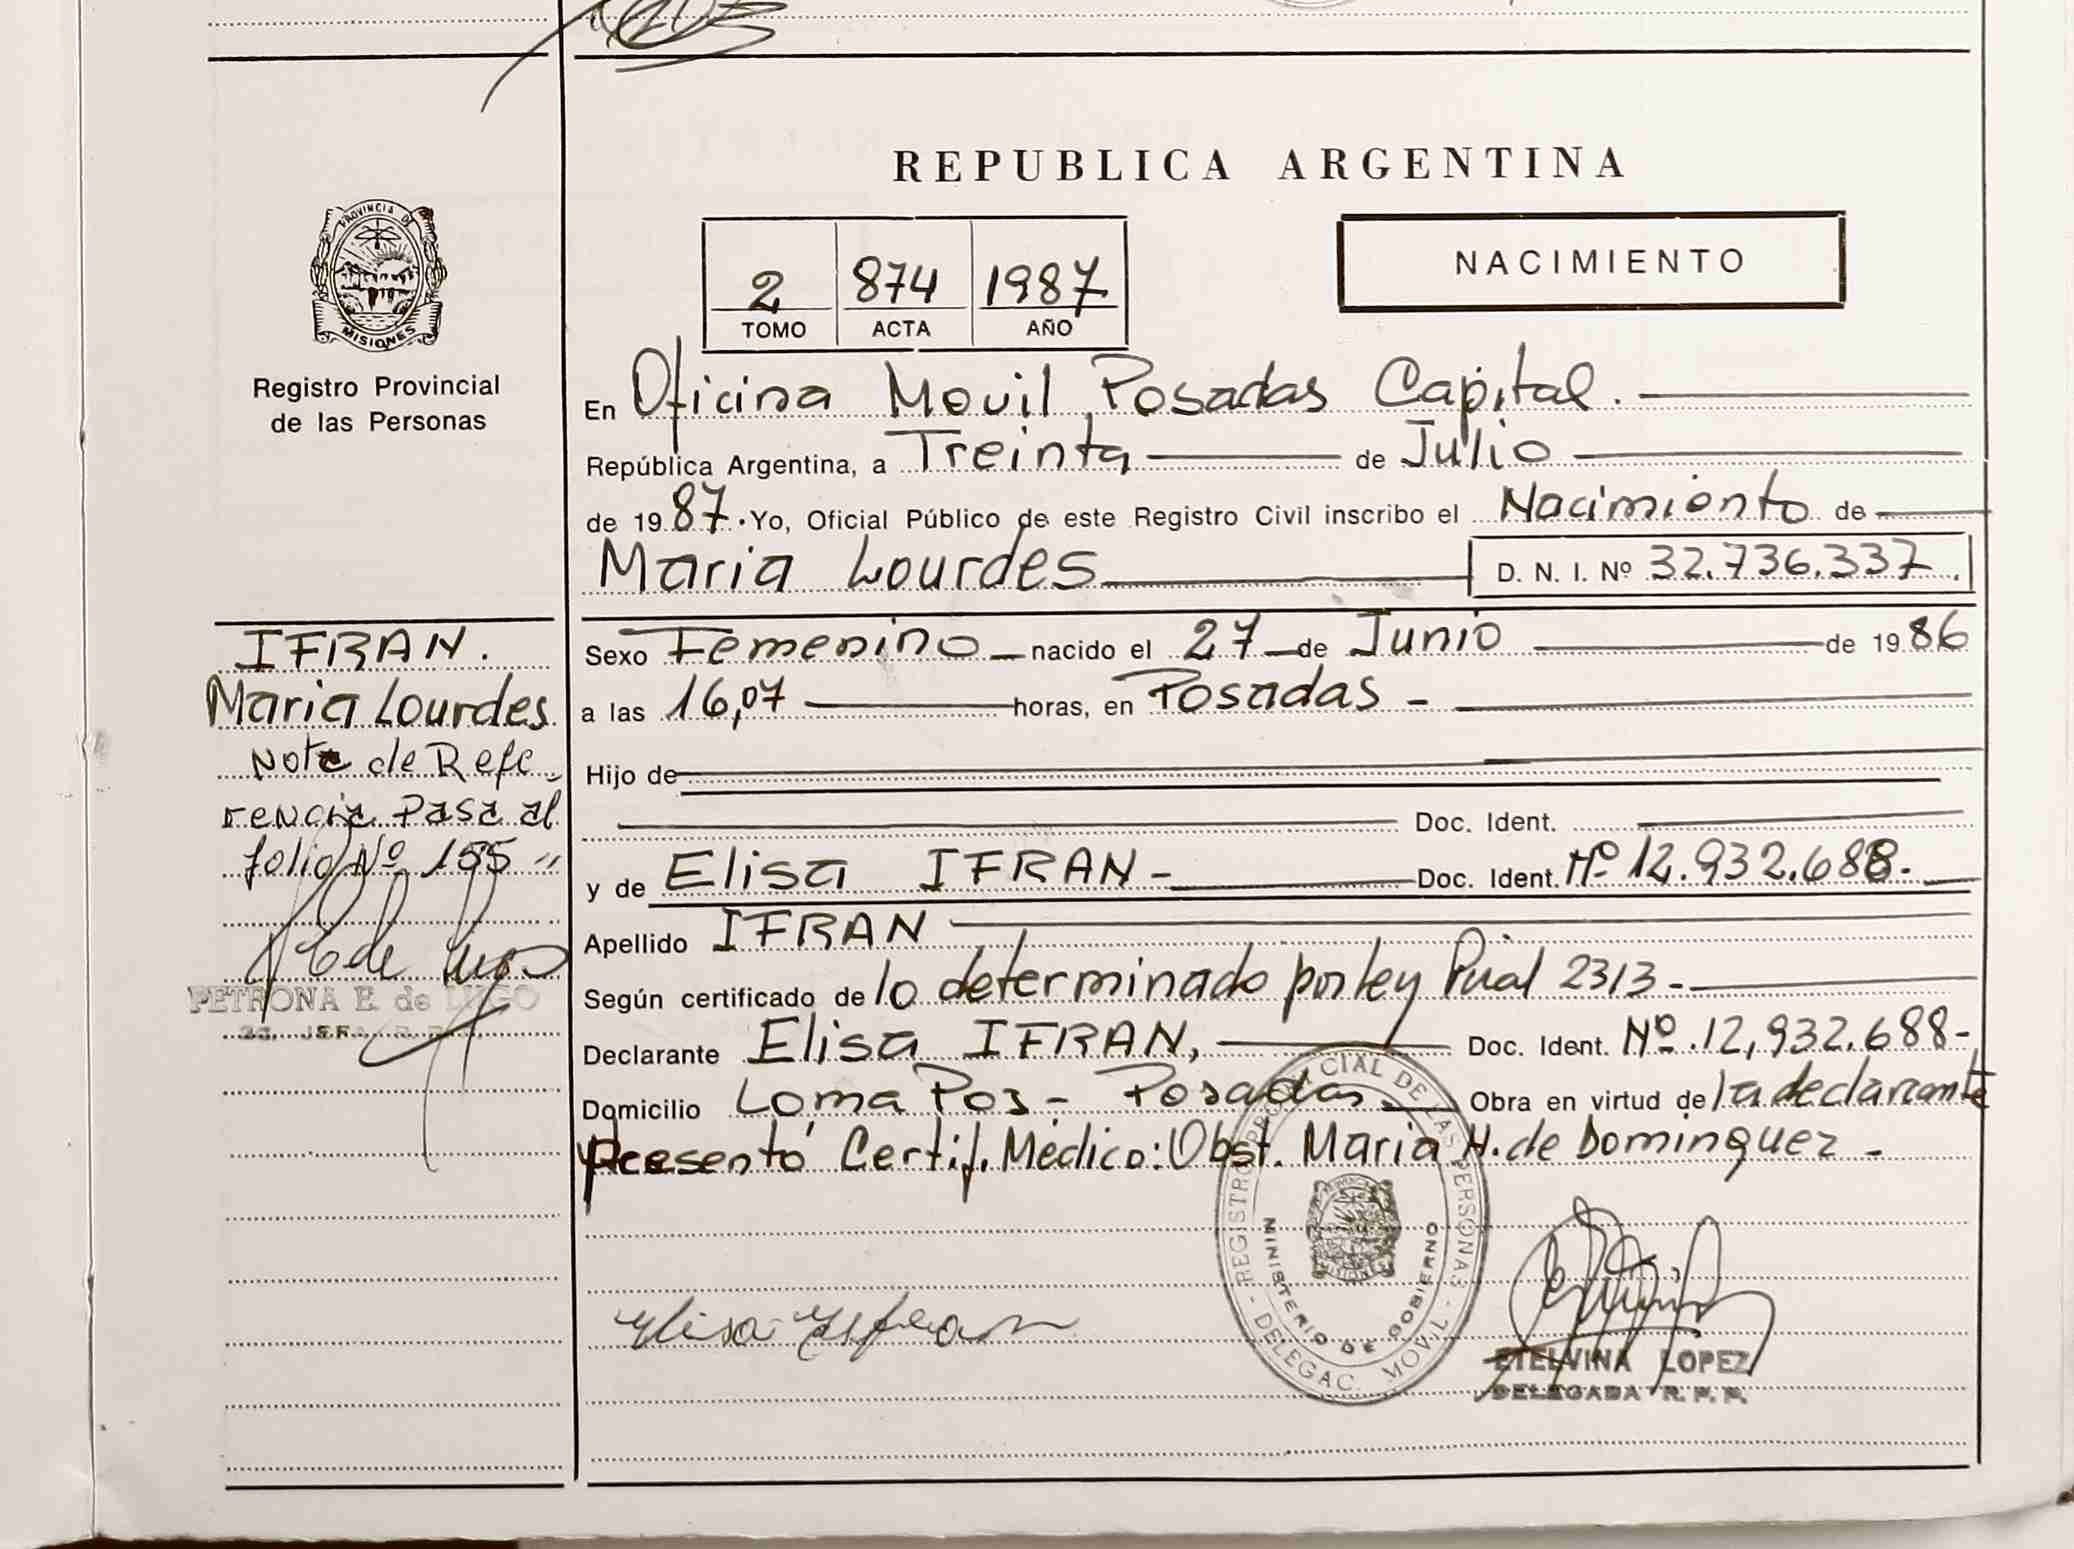 REPUBLICA ARGENTINA
PROVINCIA DE
MISIONES
Registro Provincial
de las Personas
2 874 1987
TOMO ACTA AÑO
NACIMIENTO
En Oficina Movil Posadas Capital.
República Argentina, a Treinta de Julio
de 1987. Yo, Oficial Público de este Registro Civil inscribo el Nacimiento de
Maria Lourdes D. N. I. Nº 32.736.337.
IFRAN.
Maria Lourdes
Nota de Refe
rencia Pasa al
folio Nº 155 "
PETRONA E. de LUGO
Sexo Femenino nacido el 27 de Junio de 1986
a las 16,07 horas, en Posadas -
Hijo de
Doc. Ident.
y de Elisa IFRAN - Doc. Ident. Nº 12.932.688.
Apellido IFRAN
Según certificado de lo determinado por ley Pcial 2313 -
Declarante Elisa IFRAN, Doc. Ident. Nº 12,932.688-
Domicilio Loma Pos - Posadas Obra en virtud de la declarante
presentó Certif. Médico: Obst. Maria H. de Dominguez -
REGISTRO PROVINCIAL DE LAS PERSONAS - DELEGAC. MOVIL -
MINISTERIO DE GOBIERNO
Elisa Yfran
ETELVINA LOPEZ
DELEGADA R. P. P.